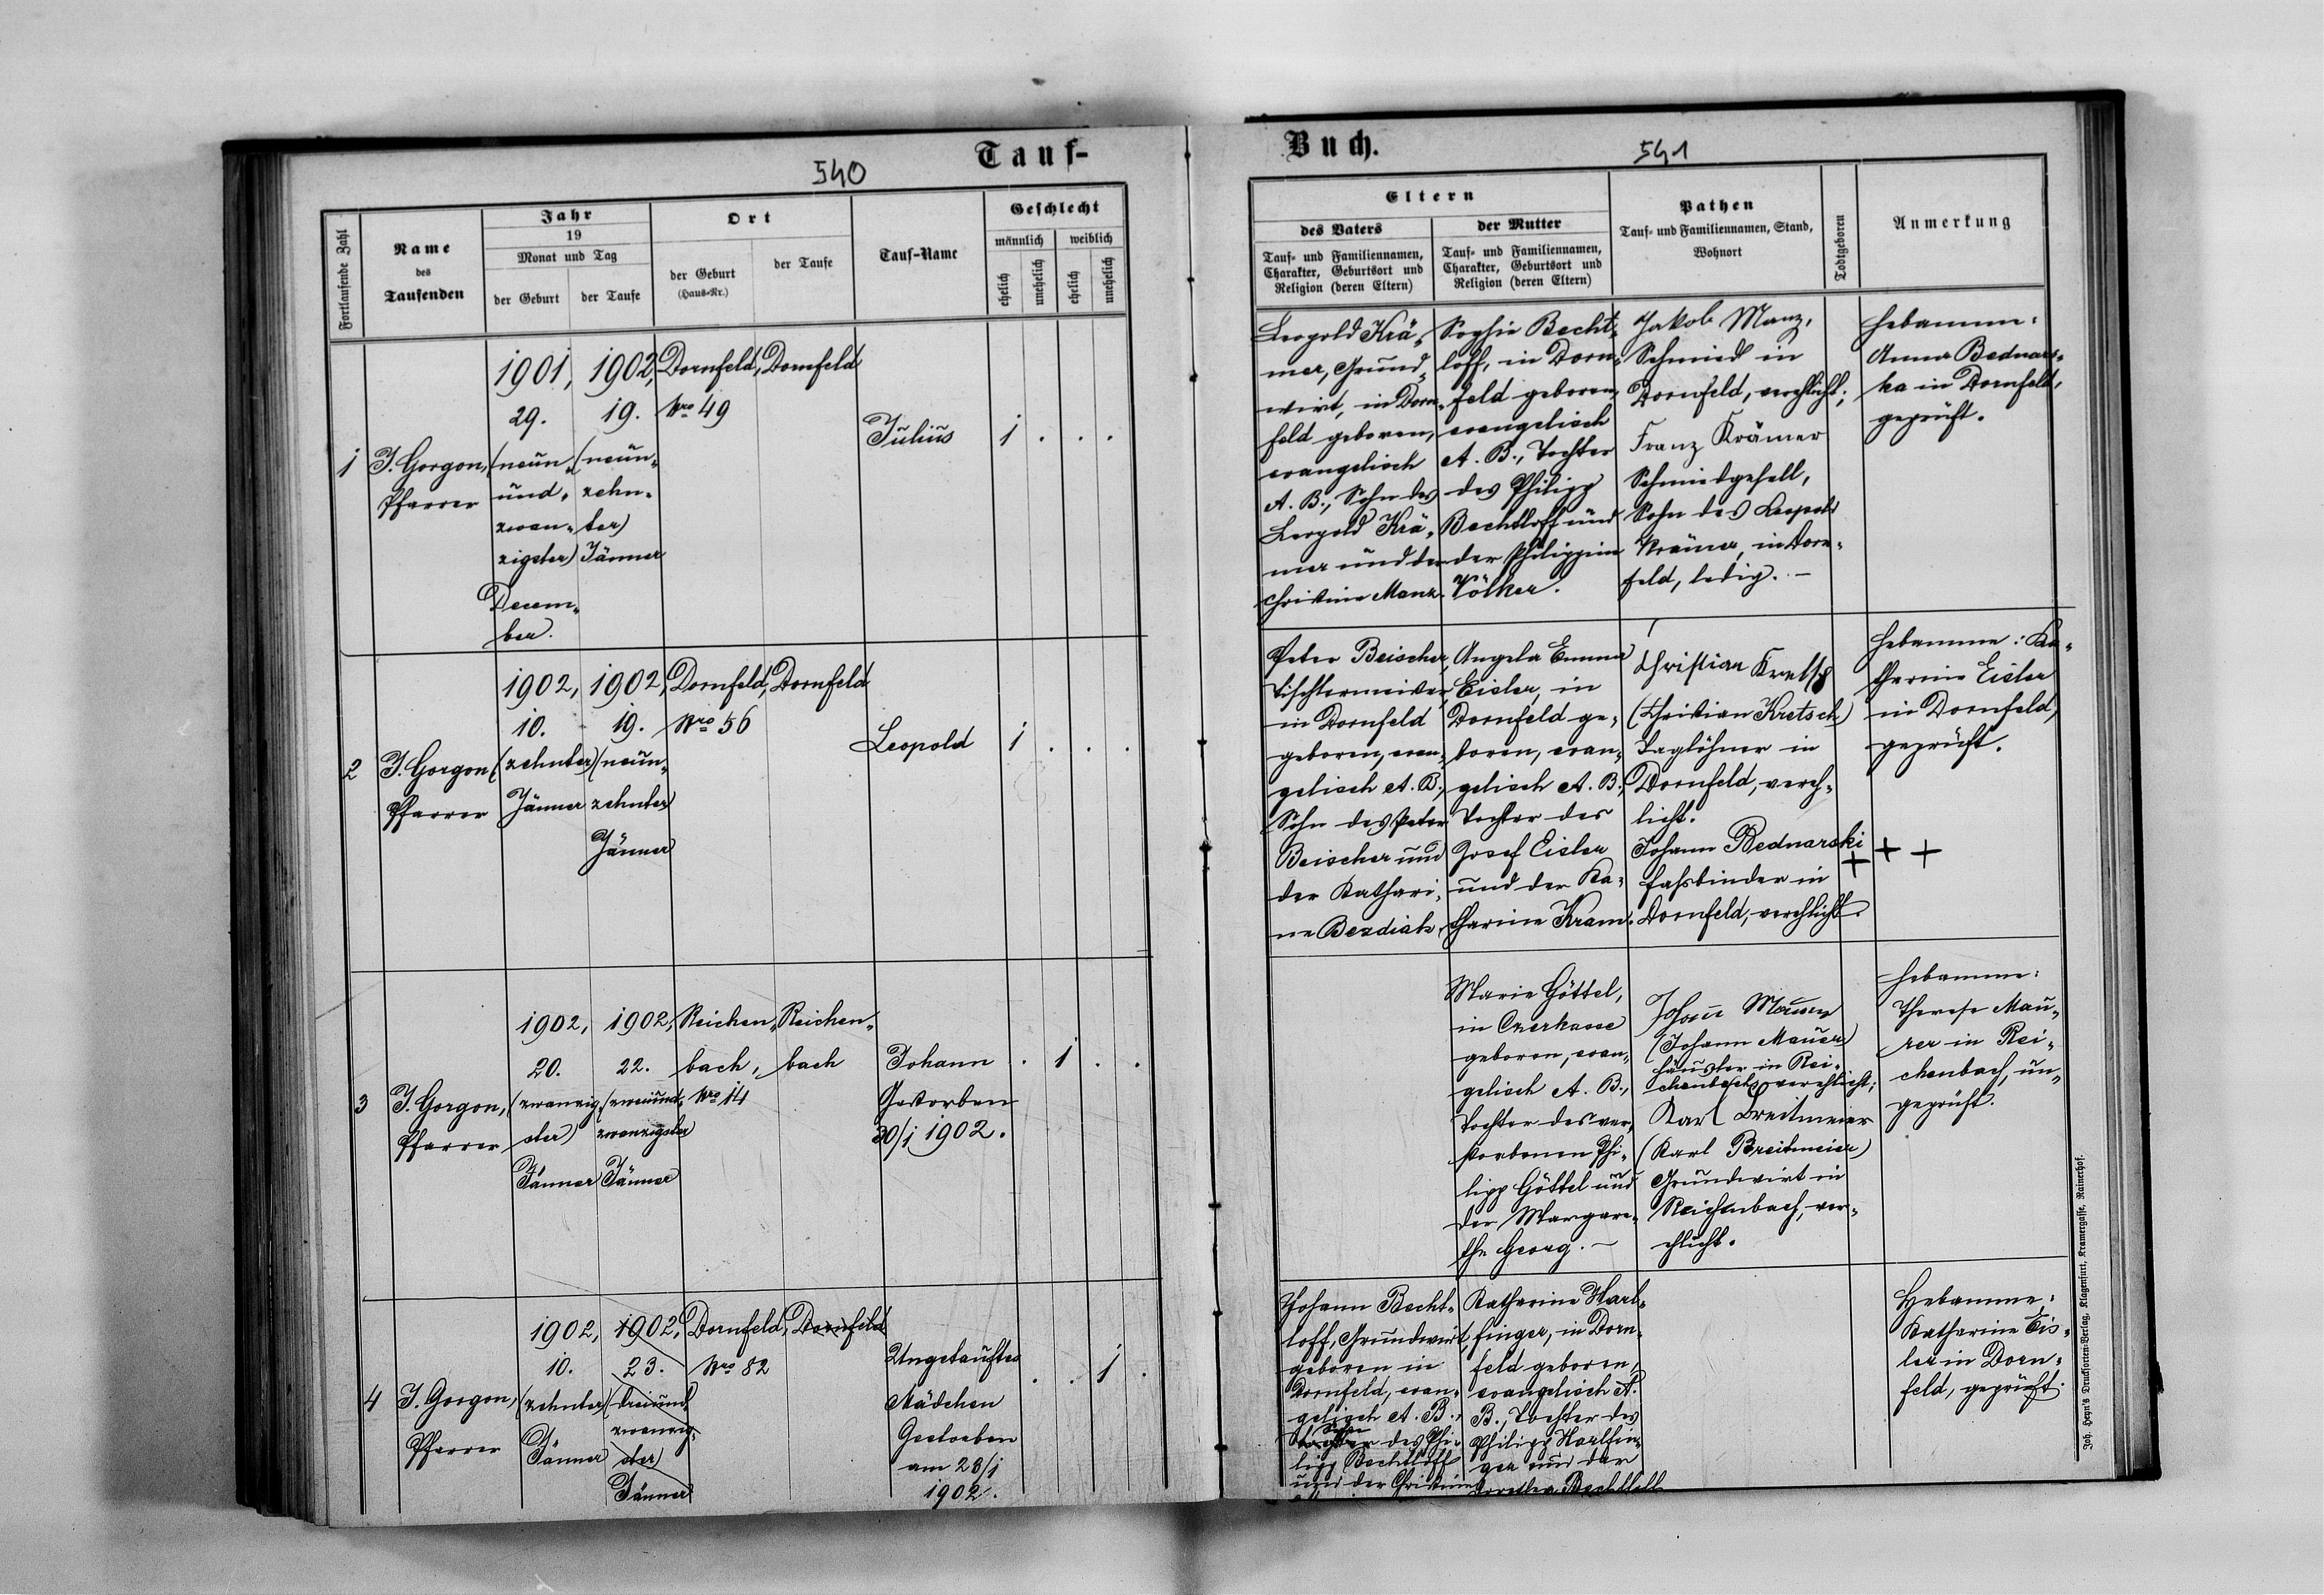 540
Tauf-
Fortlaufende Zahl
Name
des
Taufenden
Jahr
19
Monat und Tag
der Geburt
der Taufe
Ort
der Geburt
(Haus-Nr.)
der Taufe
Tauf-Name
Geschlecht
männlich
weiblich
ehelich
unehelich
ehelich
unehelich
1
J. Gorgon,
Pfarrer
1901,
29.
(neun„
und„
zwan„
zigster)
Decem„
ber.
1902,
19.
(neun„
zehn„
ter)
Jänner
Dornfeld,
Nro 49
Dornfeld
Julius
1 . . .
2
J. Gorgon
Pfarrer
1902,
10.
(zehnter)
Jänner
1902,
19.
(neun„
zehnter)
Jänner
Dornfeld,
Nro 56
Dornfeld
Leopold
1 . . .
3
J. Gorgon,
Pfarrer
1902,
20.
(zwanzig„
ster)
Jänner
1902,
22.
(zweiund„
zwanzigster)
Jänner
Reichen„
bach,
Nro 14
Reichen„
bach
Johann
Gestorben
30/1 1902.
. 1 . .
4
J. Gorgon,
Pfarrer
1902,
10.
(zehnter)
Jänner
1902,
23.
(dreiund
zwanzig„
ster)
Jänner
Dornfeld,
Nro 82
Dornfeld
Ungetauftes
Mädchen
Gestorben
am 23/1
1902.
. . 1 .
Buch.
541
Eltern
des Vaters
Tauf- und Familiennamen,
Charakter, Geburtsort und
Religion (deren Eltern)
der Mutter
Tauf- und Familiennamen,
Charakter, Geburtsort und
Religion (deren Eltern)
Pathen
Tauf- und Familiennamen, Stand,
Wohnort
Todtgeboren
Anmerkung
Leopold Krä„
mer, Grund„
wirt, in Dorn„
feld geboren,
evangelisch
A. B., Sohn des
Leopold Krä„
mer und der
Christine Manz.
Sophie Becht„
loff, in Dorn„
feld geboren,
evangelisch
A. B., Tochter
des Philipp
Bechtloff und
der Philippine
Völker.
Jakob Manz,
Schmied in
Dornfeld, verehlicht;
Franz Krämer
Schmiedgesell,
Sohn des Leopold
Krämer, in Dorn„
feld, ledig. –
Hebamme:
Anna Bednars„
ka in Dornfeld,
geprüft.
Peter Beischer,
Tischlermeister,
in Dornfeld
geboren, evan„
gelisch A. B.,
Sohn des Peter
Beischer und
der Kathari„
ne Bezdiak.
Angela Emma
Eisler, in
Dornfeld ge„
boren, evan„
gelisch A. B.,
Tochter des
Josef Eisler
und der Ka„
tharine Kram.
Christian Kretsch
(Christian Kretsch)
Taglöhner in
Dornfeld, vereh„
licht.
Johann Bednarski
Fassbinder in
Dornfeld, verehlicht.
+ + +
Hebamme: Ka„
tharine Eisler
in Dornfeld,
geprüft.
Marie Göttel,
in Czerkasse
geboren, evan„
gelisch A. B.,
Tochter des ver„
storbenen Phi„
lipp Göttel und
der Margare„
the Georg. –
Johann Mauer
(Johann Mauer)
Häusler in Rei„
chenbach, verehlicht;
Karl Breitmeier
(Karl Breitmeier)
Grundwirt in
Reichenbach, ver„
ehlicht.
Hebamme:
Therese Mau„
rer in Rei„
chenbach, un„
geprüft.
Johann Becht„
loff, Grundwirt,
geboren in
Dornfeld, evan„
gelisch A. B.,
Sohn
des Phi„
lipp Bechtloff
und der Christine
Katharine Harl„
finger, in Dorn„
feld geboren,
evangelisch A.
B., Tochter des
Philipp Harlfin„
ger und der
Dorothea Bechtloff
Hebamme:
Katharine Eis„
ler in Dorn„
feld, geprüft.
Joh. Heyn's Drucksorten-Verlag, Klagenfurt, Kramergasse, Rainerhof.